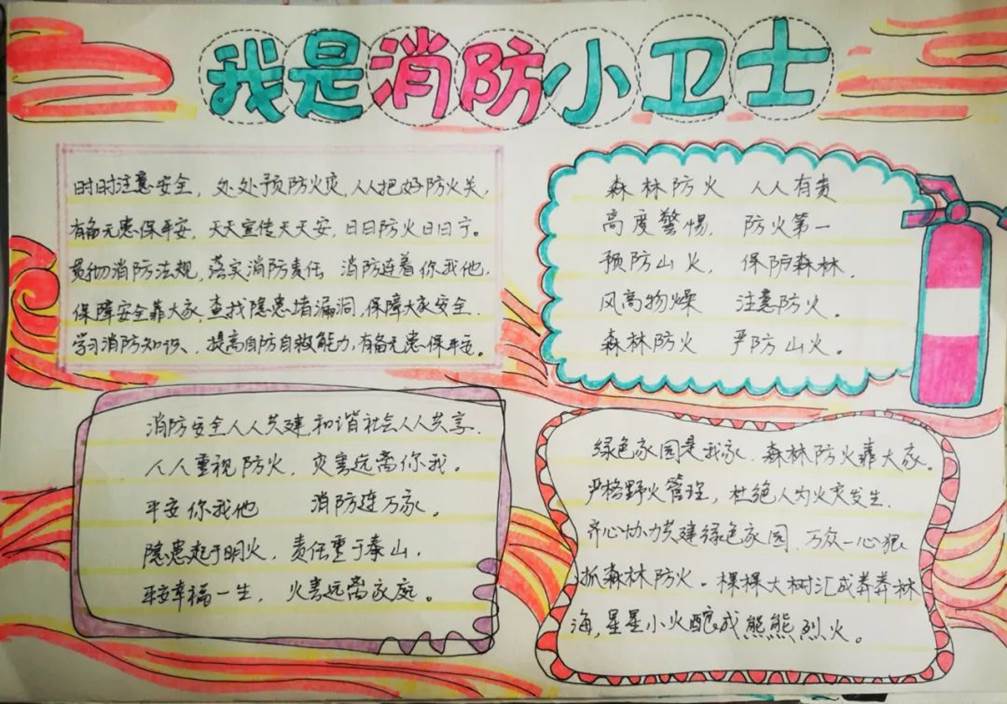 我是消防小卫士
时时注意安全，处处预防火灾，人人把好防火关，
有备无患保平安，天天宣传天天安，日日防火日日宁。
贯彻消防法规，落实消防责任 消防连着你我他，
保障安全靠大家，查找隐患堵漏洞，保障大家安全.
学习消防知识、提高自防自救能力，有备无患保平安。
森林防火 人人有责
高度警惕， 防火第一
预防山火， 保护森林.
风高物燥 注意防火。
森林防火 严防山火。
消防安全人人共建 和谐社会人人共享.
人人重视防火，灾害远离你我。
平安你我他 消防连万家。
隐患起于明火，责任重于泰山，
平安幸福一生，火害远离家庭。
绿色家园是我家，森林防火靠大家。
严格野火管理，杜绝人为火灾发生.
齐心协力共建绿色家园，万众一心狠
抓森林防火。棵棵大树汇成莽莽林
海，星星小火酿成熊熊烈火。